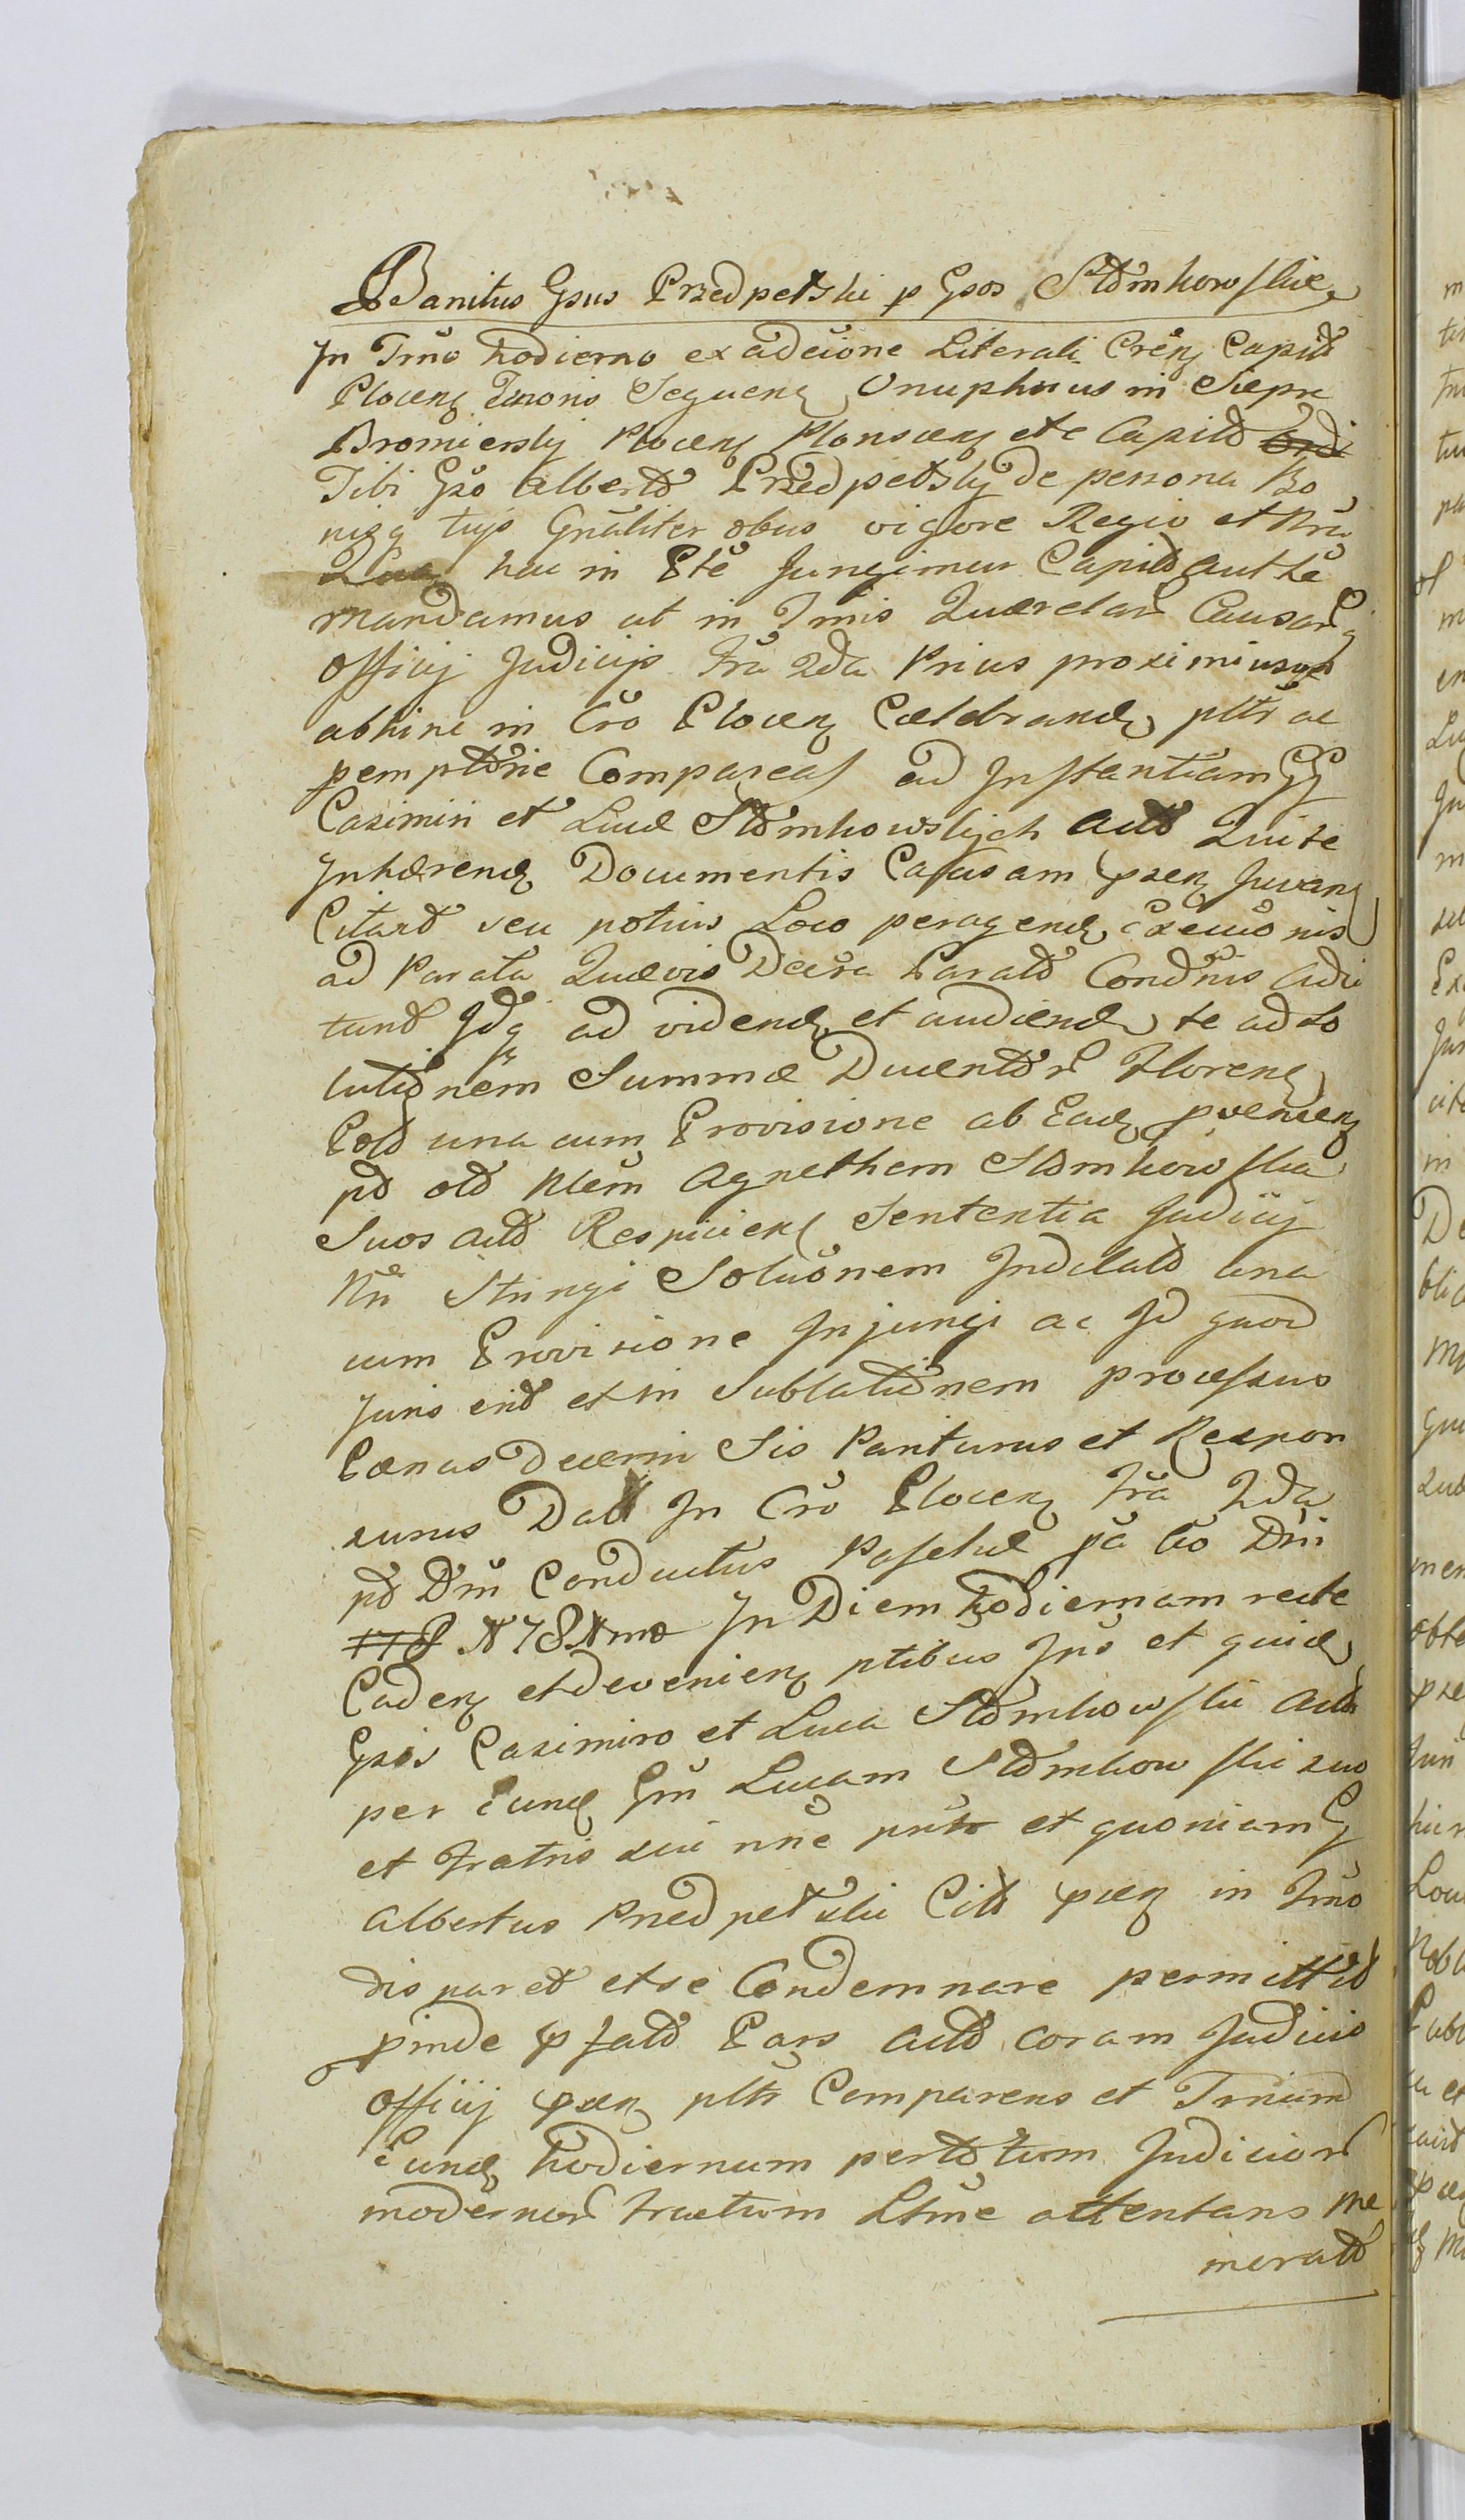 Banitus Gsus Przedpełski p Gsos Słomkowskie
In Trno hodierno ex adcione Literali Cren Capit
Plocen Tenoris Sequen Onuphrius in Siepre
Bromierskj Plocen Plonscen etc Capit
Tibi Gso Alberto Przedpełskj de persona Bo
nisq tujs Gnaliter obus vigore Regio et Nro
hac in Pte fungimur Capit autte
mandamus ut in Tmis Querelar Causarq
Officij Judicijs fra 2da Prius proximiusve
abhinc in Cro Plocen Celebrand pltr ac
pemptorie Compareas ad Instantiam GG
Casimiri et Luca Słomkowskjch Act Qui te
Inhærend Documentis Causam psen Juvan
Citant seu potius Loco peragend Exeucionis
ad Parata Quævis Decra Parato Condnis adci
tant Idq ad vidend et audiend te ad so
lutionem Summæ Ducentor Floren
Pol una cum Provisione ab Ead pvenien
pd old Nlem Agnethem Słomkowska
Suos act Respicien Sententia Judicij
Nri Stringi Soluonem Indilat una
cum Provisione Injungi ac Id quod
Juris erit et in Sublationem processus
Pænas Decerni Sis Pariturus et Respon
surus Dat In Cro Plocen fra 2da
pt Dm Conductus Paschæ pa Ao Dni
In Diem hodiernam recte
Caden et devenien ptibus Ips et quid
Gsis Casimiro et Luca Słomkowski act
per Eund Gm Lucam Słomkowski suo
et fratris sui nne pntr et quoniam G
Albertus Przedpełski Cit psen in Trno
disparet et se Condemnare permittit
pinde pfat Pars act coram Judicio
Officij psen pltr Comparens et Trnum
Eund hodiernum per totum Judicior
modernor tractum Ltme attentans me
morat